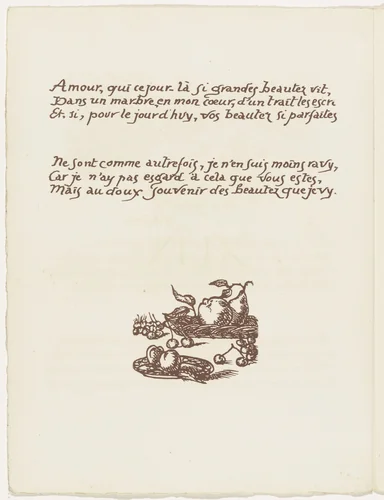 Amour, qui ce jour-là si grandes beautez vit,
Dans un marbre, en mon cœur, d'un trait les escri
Et si, pour le jourd'huy, vos beautez si parfaites
Ne sont comme autrefois, je n'en suis moins ravy,
Car je n'ay pas esgard à cela que vous estes,
Mais au doux souvenir des beautez que je vy.